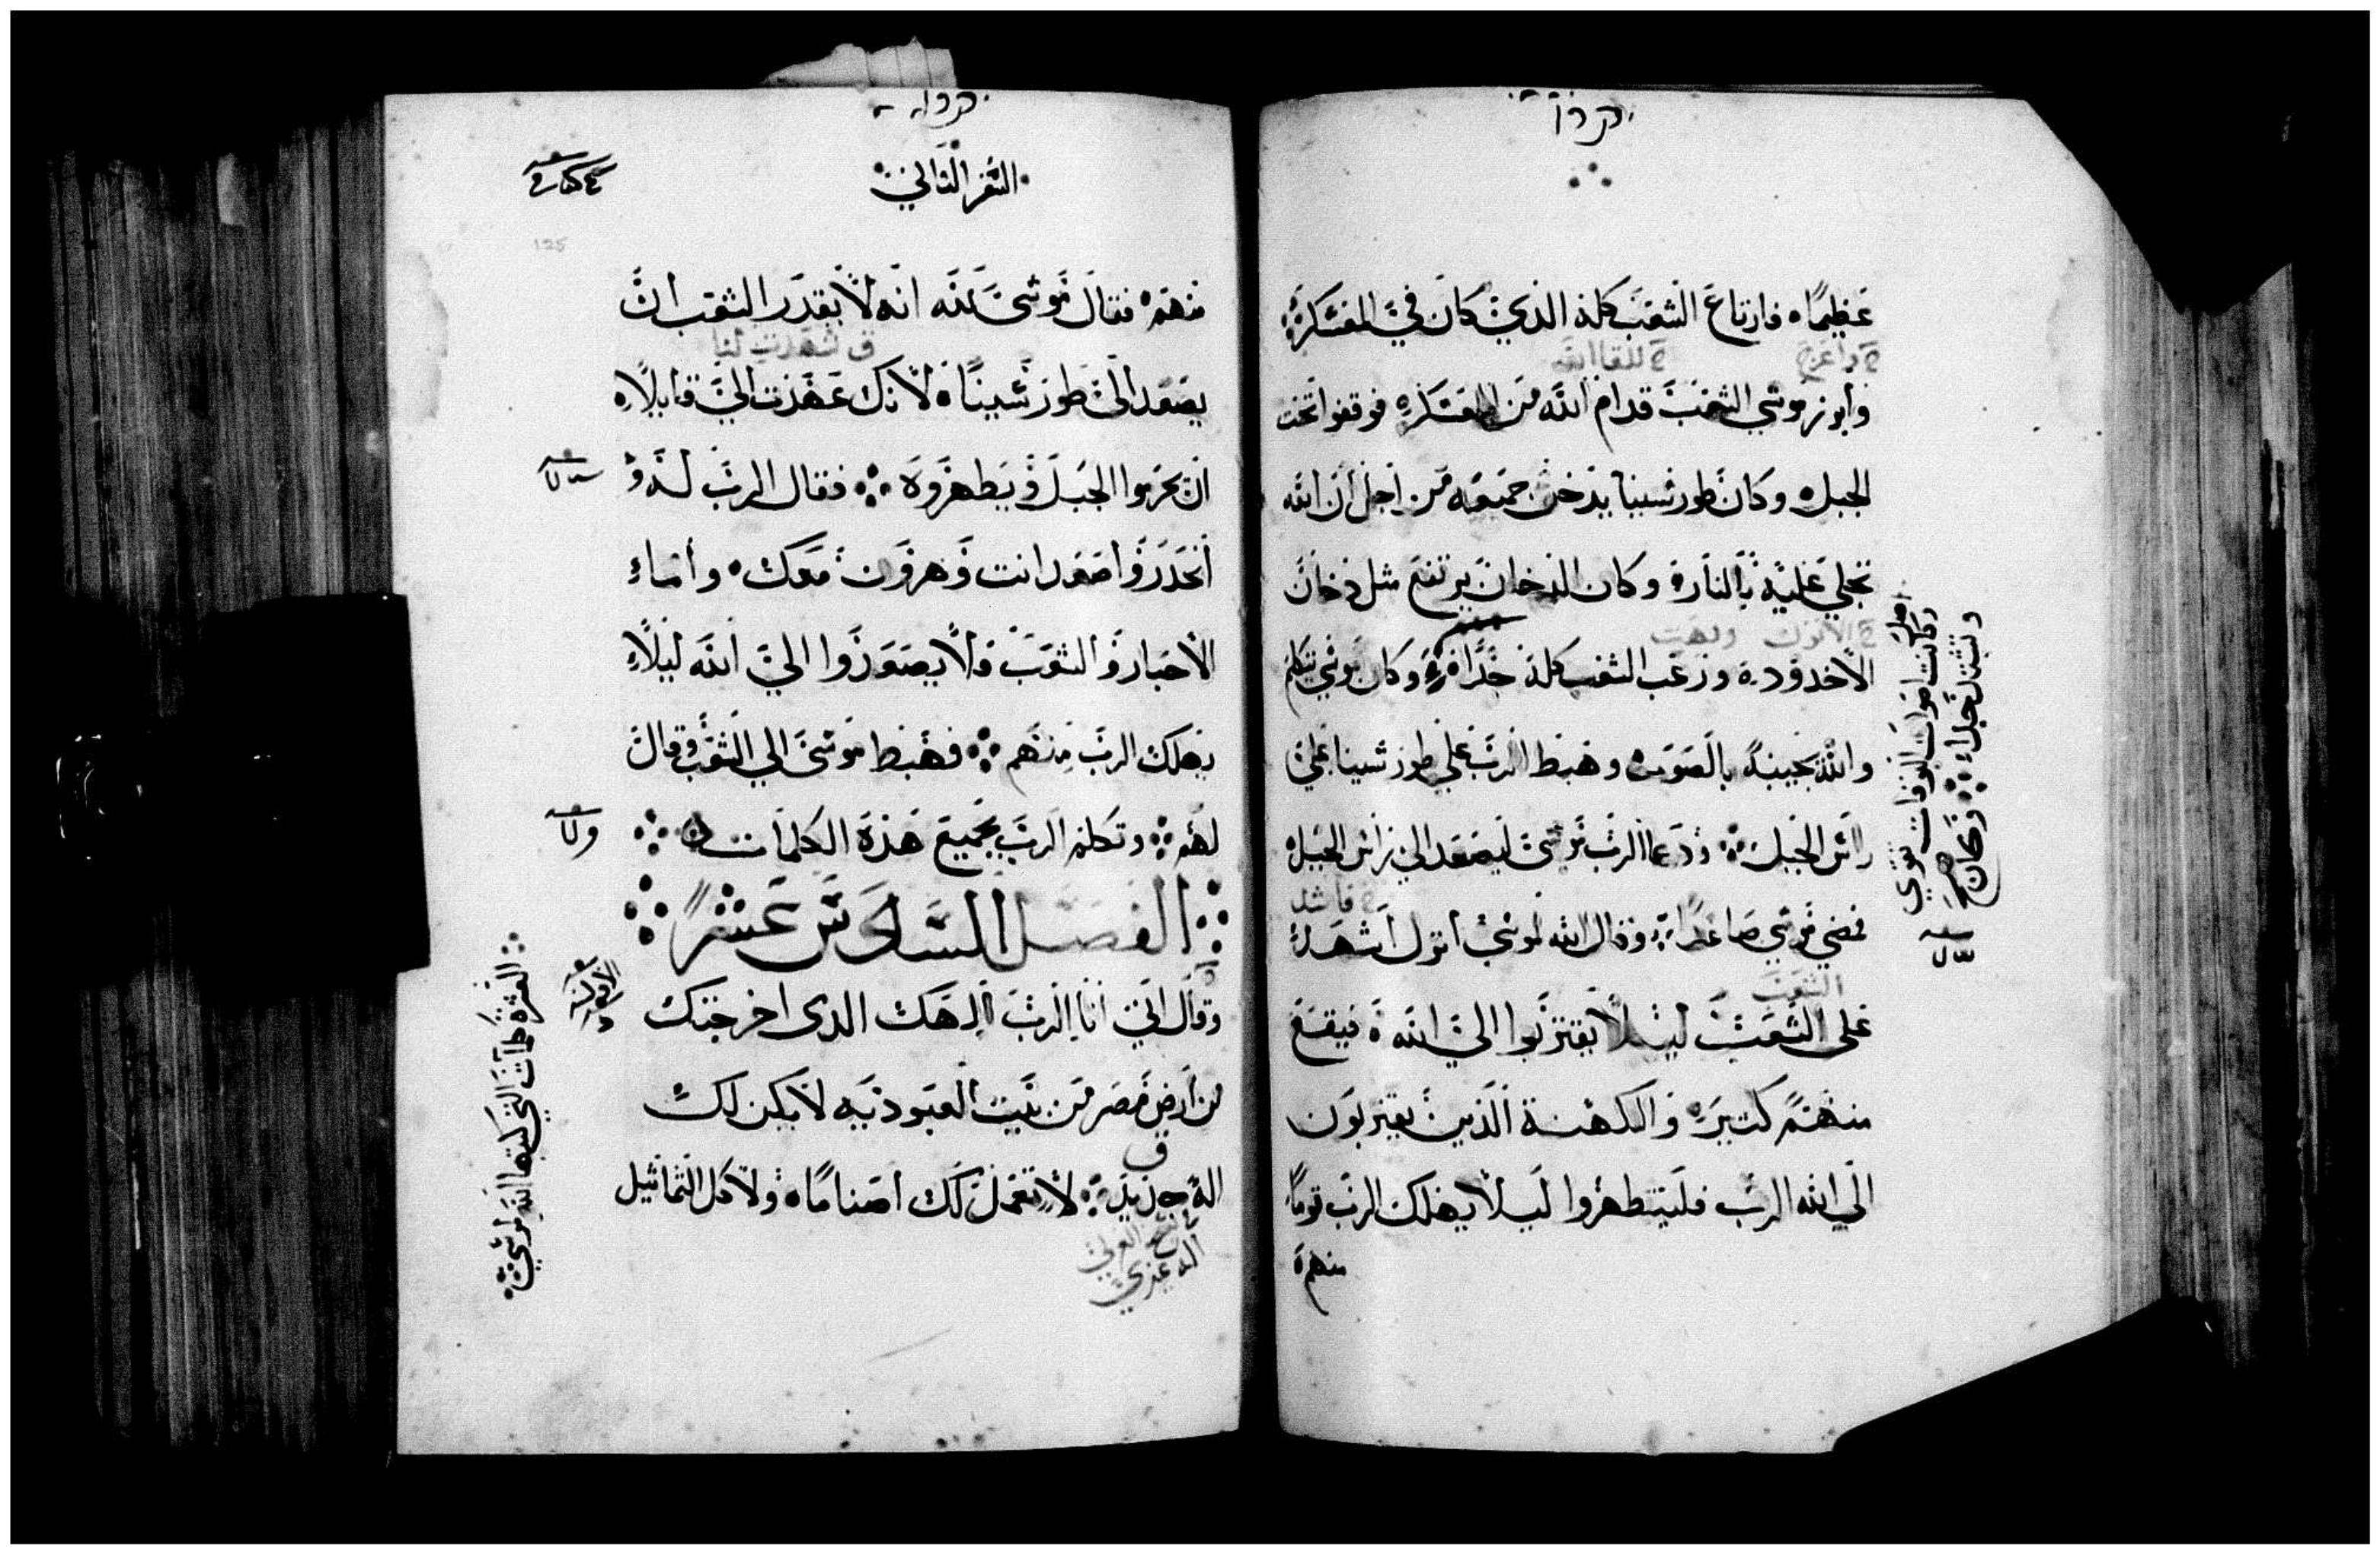 عظيمًا فارتاع الشعب كله الذي كان في المعسكر
وابرز موسي الشعب قدام الله من المعسكر فوقفوا تحت
الجبل وكان طور سينا يدخن جميعه من اجل ان الله
تجلي عليه بالنار وكان الدخان يرتفع مثل دخان
الاخدود ورعب الشعب كله جدًا وكان موسي يتكلم
والله يجيبه بالصوت وهبط الرب علي طور سينا علي
راس الجبل ودعا الرب موسى ليصعد الي راس الجبل
فمضي موسي صاعدًا وقال الله لموسى انزل اشهد
على الشعب ليلا يقتربوا الي الله فيقع
منهم كتيره والكهنة الذين يقتربون
الي الله الرب فليتطهروا ليلا يهلك الرب قومًا
منهم
وكانت اصوات البوقات تقوي
وتشتد جدا وكان
السفر الثاني
125
منهم فقال موسى لله انه لا يقدر الشعب ان
يصعد الى طور سينا لانك عهدت الي قايلا
ان يحرموا الجبل ويطهروه فقال الرب له
انحدر واصعد انت وهرون معك واما
الاحبار والشعب فلا يصعدوا الي الله ليلا
يهلك الرب منهم فهبط موسى الي الشعب وقال
لهم وتكلم الرب بجميع هذه الكلمات
الفصل السادس عشر
وقال اني انا الرب الهك الدى اخرجتك
من ارض مصر من بيت العبوديه لا يكن لك
اله جديد لا تعمل لك اصنامًا ولا كل التماثيل
العشرة كلمات التي كتبها الله لموسي